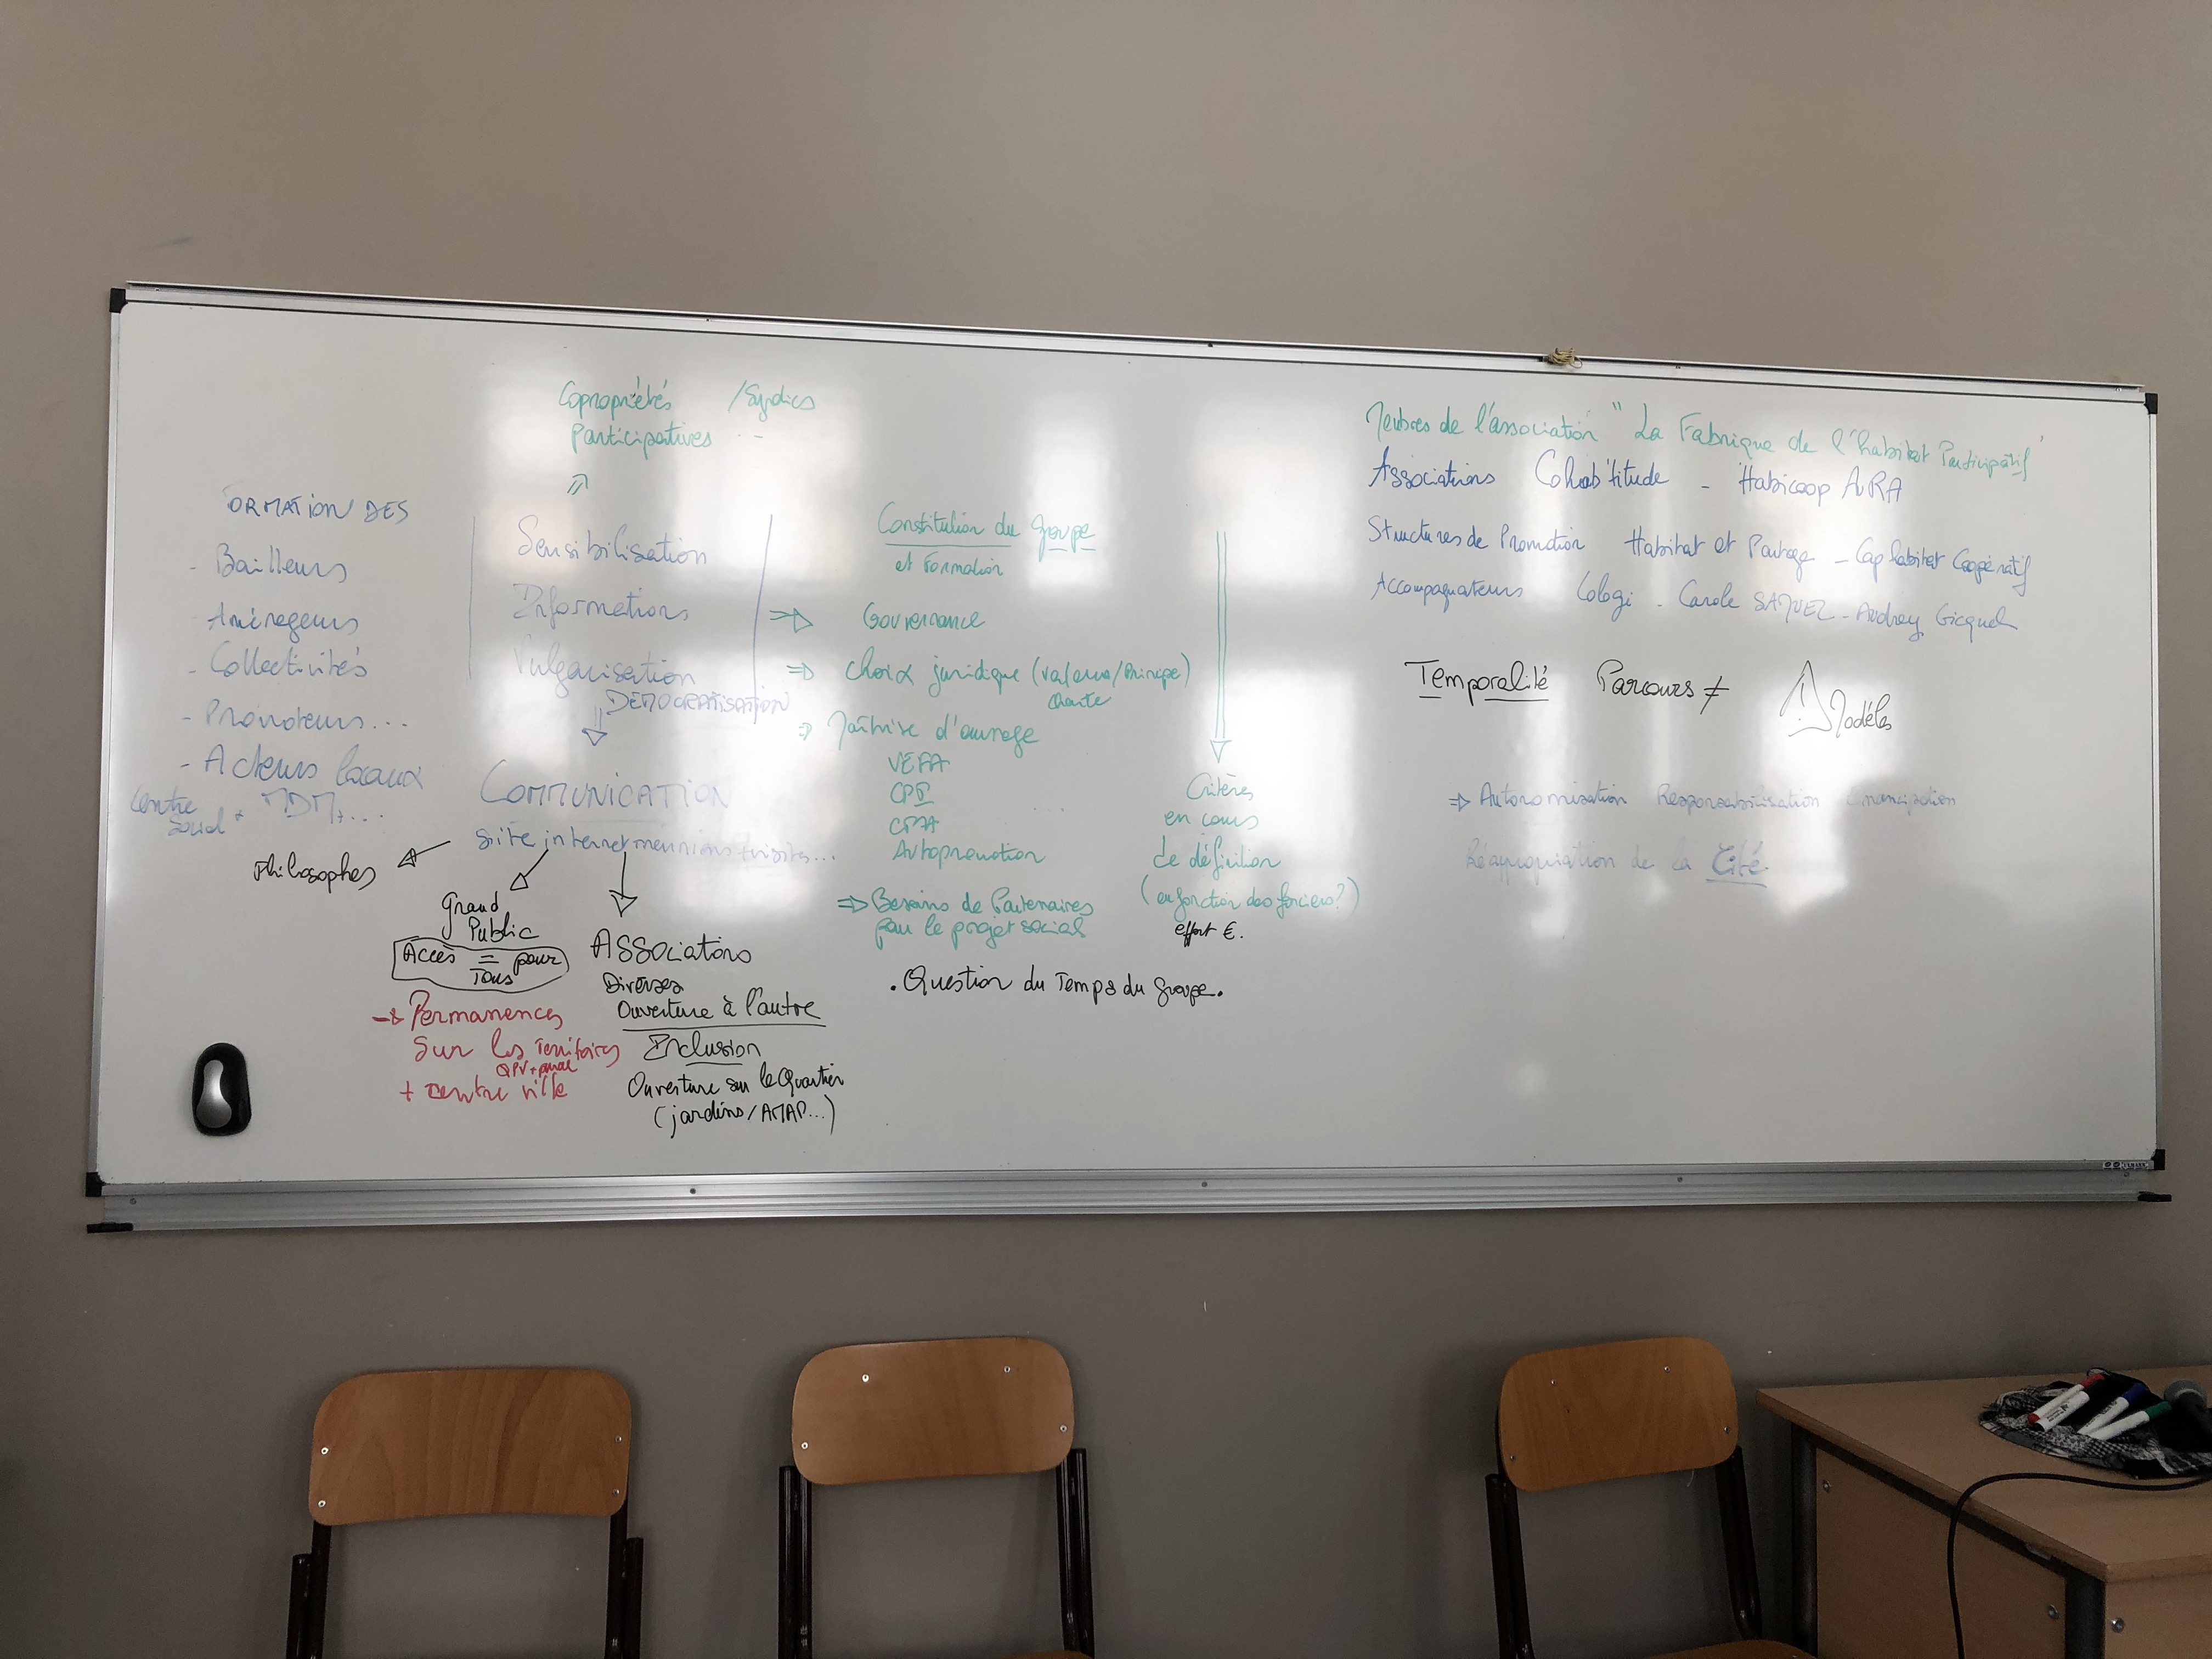 Copropriétés /Syndics
Participatives ...
FORMATION DES
- Bailleurs
- Aménageurs
- Collectivités
- Promoteurs...
- Acteurs locaux
Centre social + MDM+...
Sensibilisation
Informations
Vulgarisation
DÉMOCRATISATION
COMMUNICATION
site internet réunions + visites...
Philosophes
Grand
Public
Accès = pour
Tous
→ Permanences
Sur les Territoires
QPV + rural
+ centre ville
ASSociations
Diverses
Ouverture à l'autre
Inclusion
Ouverture sur le Quartier
(jardins/AMAP...)
Constitution du groupe
et Formation
⇒ Gouvernance
⇒ choix juridique (valeurs/Principe)
charte
⇒ Maîtrise d'ouvrage
VEFA
CPI
Autopromotion
⇒ Besoins de Partenaires
pour le projet social
. Question du Temps du groupe.
Critères
en cours
de définition
(en fonction des fonciers?)
effort €.
Membres de l'association "La Fabrique de l'habitat Participatif"
Associations Cohab'titude - Habicoop AuRA
Structures de Promotion Habitat et Partage - Cap habitat Coopératif
Accompagnateurs Cologi - Carole SAMUEL - Audrey Gicquel
Temporalité Parcours ≠ ! Modèles
⇒ Autonomisation Responsabilisation Emancipation
Réappropriation de la Cité